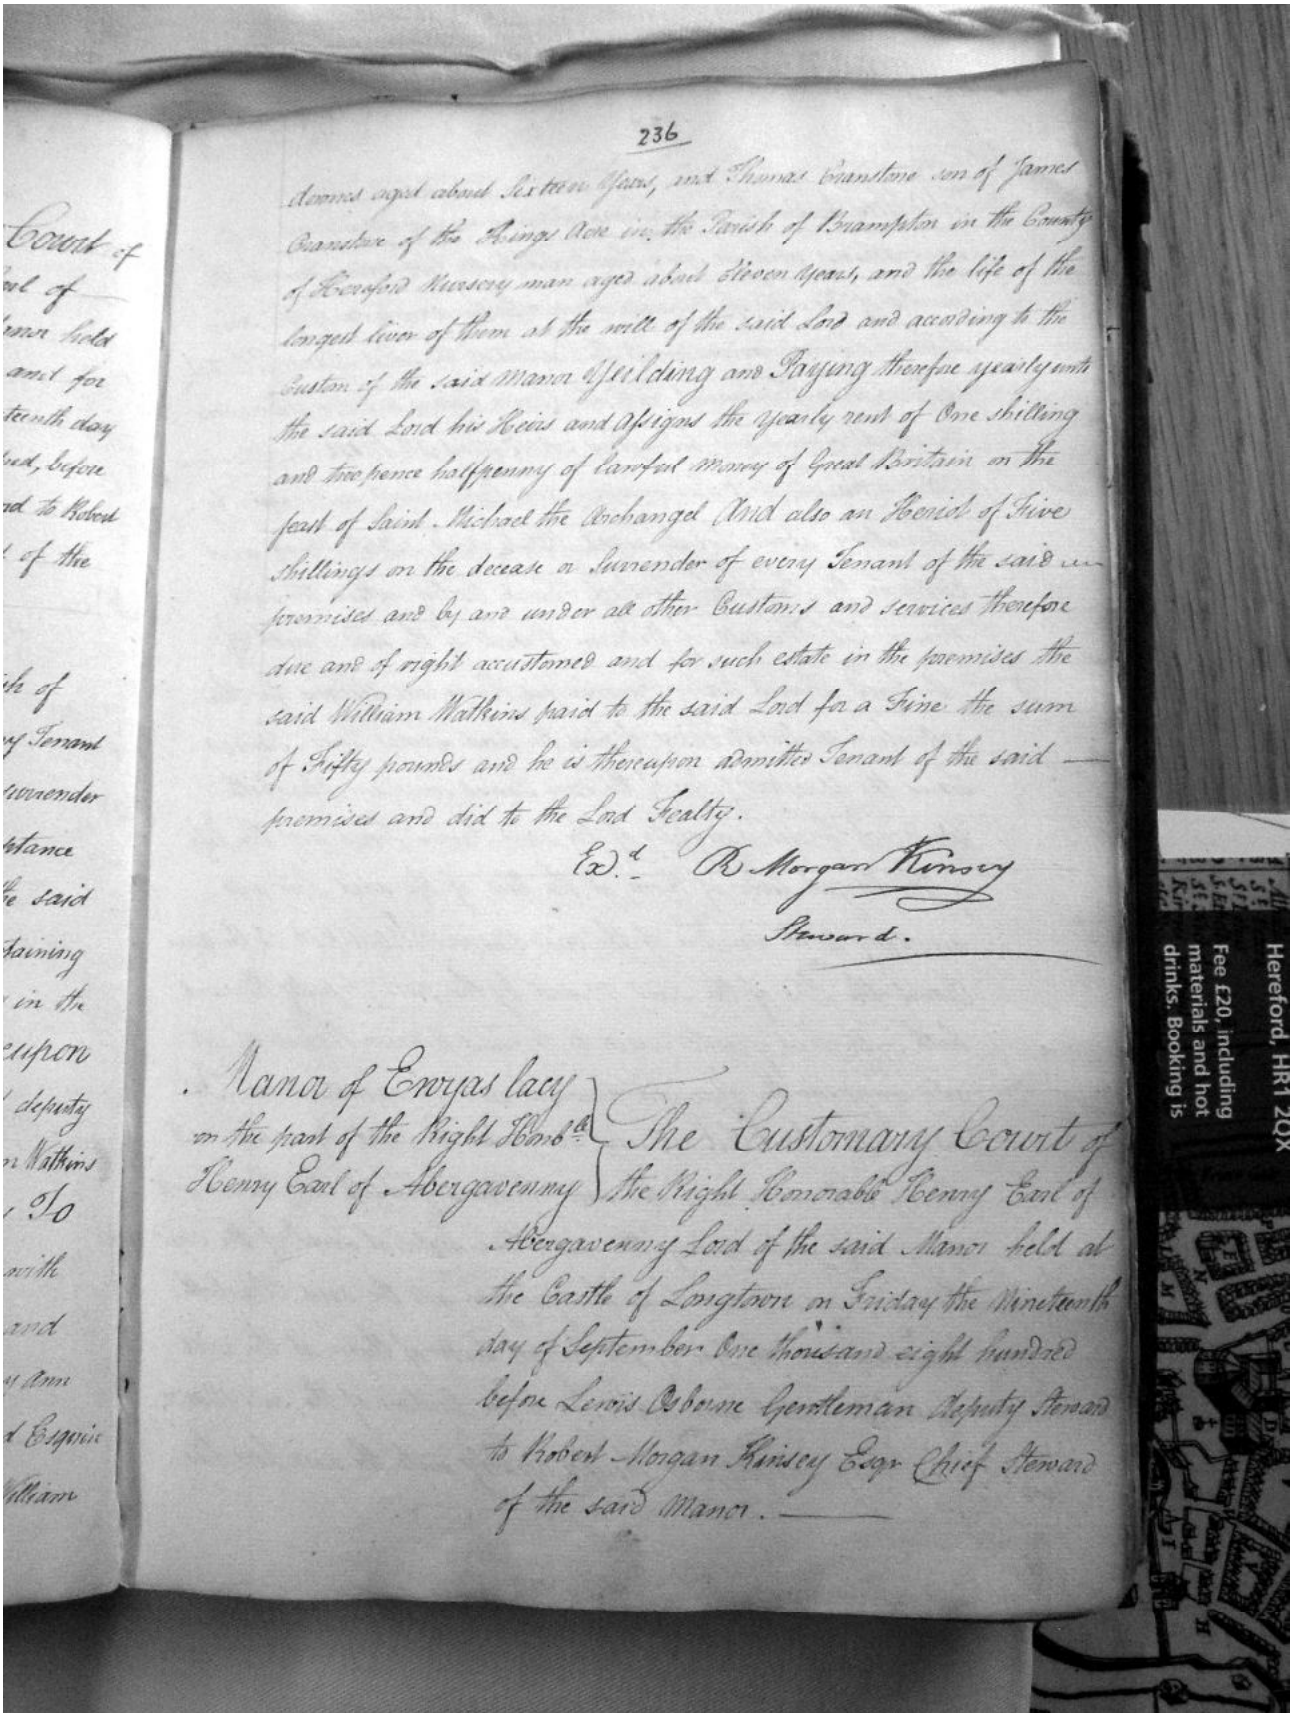 Court of
of
held
and for
teenth day
before
to Robert
of the
of
Tenant
surrender
ptance
said
taining
in the
upon
deputy
Watkins
To
with
and
Ann
Esquire
William
236
aged about Sixteen Years, and Thomas Cranstone son of James
Cranstone of the Kings Acre in the Parish of Brampton in the County
of Hereford Nursery man aged about Eleven Years, and the life of the
longest liver of them at the will of the said Lord and according to the
Custom of the said Manor Yeilding and Paying therefore yearly unto
the said Lord his Heirs and Assigns the Yearly rent of One shilling
and two pence halfpenny of lawful Money of Great Britain on the
feast of Saint Michael the Archangel And also an Heriot of Five
shillings on the decease or Surrender of every Tenant of the said
premises and by and under all other Customs and services therefore
due and of right accustomed and for such estate in the premises the
said William Watkins paid to the said Lord for a Fine the sum
of Fifty pounds and he is thereupon admitted Tenant of the said
premises and did to the Lord Fealty.
Exd. R Morgan Kinsey
Steward.
Manor of Ewyas lacy
on the part of the Right Honble
Henry Earl of Abergavenny
The Customary Court of
the Right Honorable Henry Earl of
Abergavenny Lord of the said Manor held at
the Castle of Longtown on Friday the Nineteenth
day of September One thousand eight hundred
before Lewis Osborne Gentleman deputy Steward
to Robert Morgan Kinsey Esqr Chief Steward
of the said Manor.
Hereford, HR1 2QX
Fee £20, including
materials and hot
drinks. Booking is